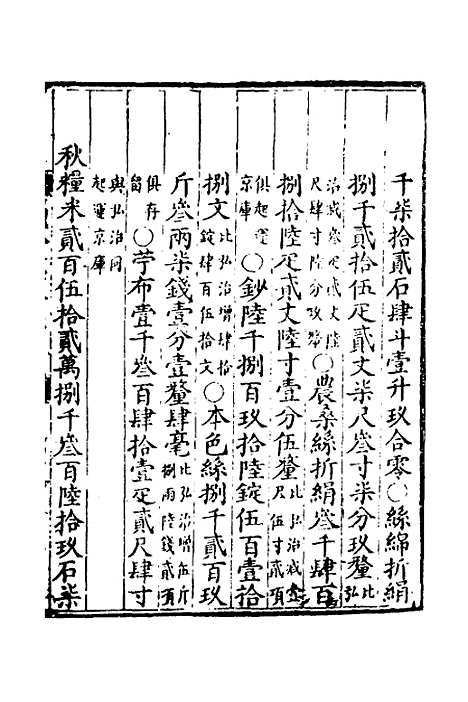 千柒拾貳石肆斗壹升玖合零○絲綿折絹
捌千貳拾伍疋貳丈柒尺叄寸柒分玖釐比弘
治減叄疋貳丈陸
尺肆寸陸分玖
○農桑絲折絹叄千肆百
捌拾陸疋貳丈陸寸壹分伍釐比弘治減壹
尺伍寸貳項
俱起運
京庫
○鈔陸千捌百玖拾陸錠伍百壹拾
捌文比弘治增肆拾
錠肆百伍拾文
○本色絲捌千貳百玖
斤叄兩柒錢壹分壹釐肆毫比弘治增伍斤
捌兩陸錢貳項
俱存
留
○苧布壹千叄百肆拾壹疋貳尺肆寸
與弘治同
起運京庫
秋糧米貳百伍拾貳萬捌千叄百陸拾玖石柒